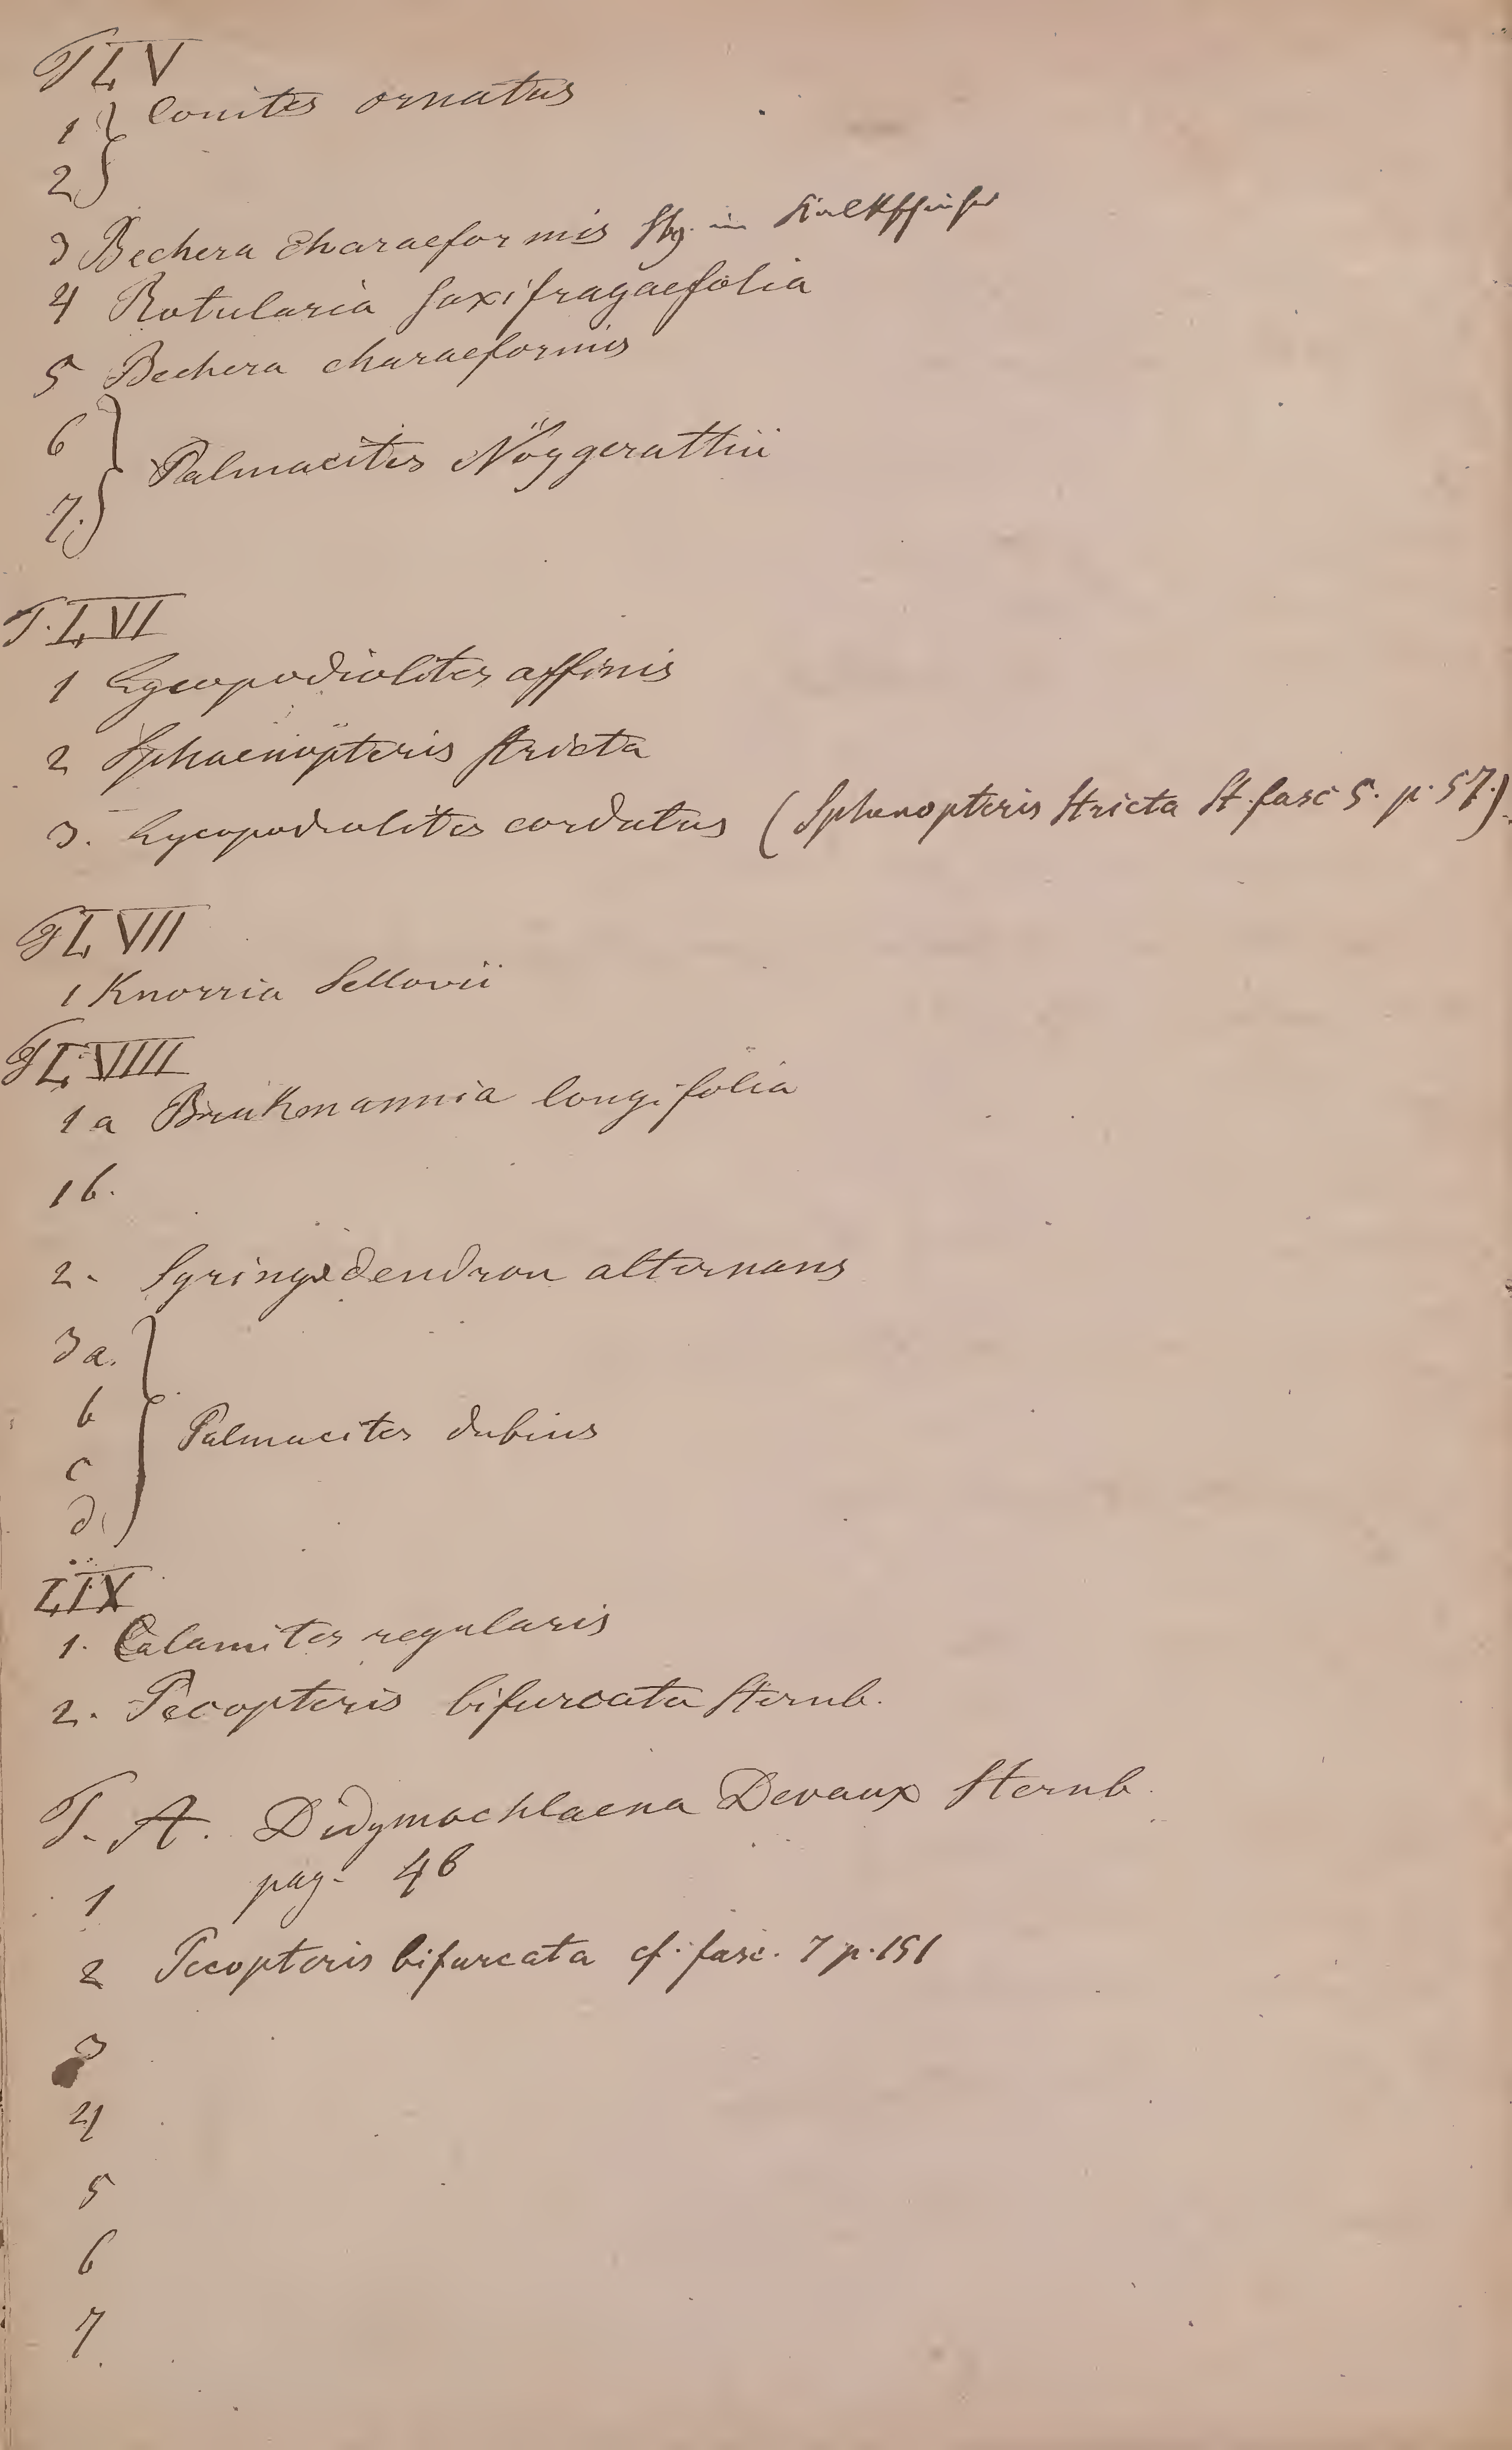 T LV
1 } Conites ornatus
2
3 Bechera charaeformis Stbg. in
4 Rotularia saxifragaefolia
5 Bechera charaeformis
6
} Palmacites Nöggerathii
7.
T. LVI
1 Lycopodiolites affinis
2 Sphaenopteris stricta
3. Lycopodiolites cordatus (Sphenopteris stricta St. fasc 5. p. 57.)
T LVII
1 Knorria Sellovii
T LVIII
1 a Brukmannia longifolia
1 b.
2. Syringodendron alternans
3 a.
b
} Palmacites dubius
c
d
LIX
1. Calamites regularis
2. Pecopteris bifurcata Sternb.
T. A. Didymochlaena Devaux Sternb.
pag. 46
1
2 Pecopteris bifurcata cf. fasc. 7 p. 151
3
4
5
6
7